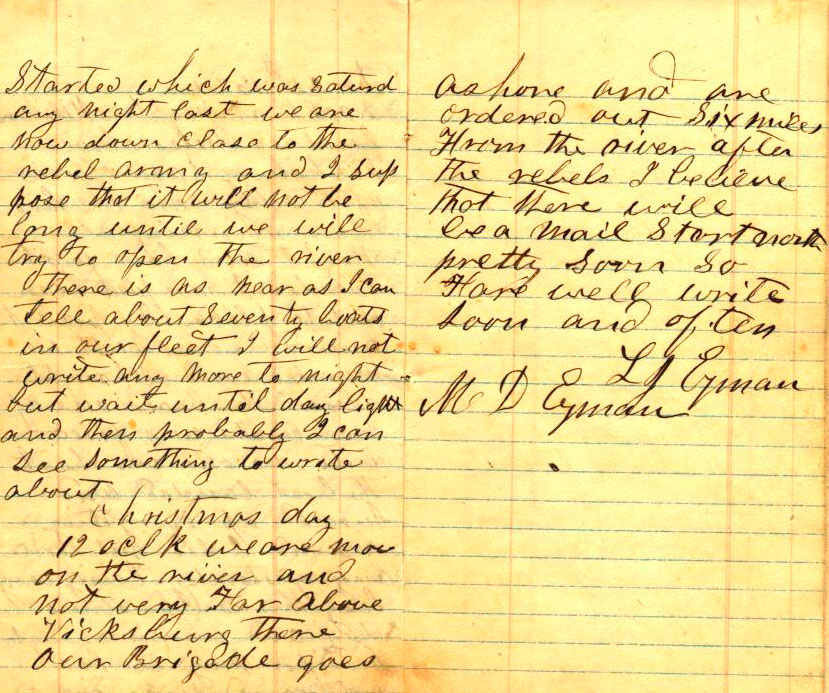 Started which was saturd
ay night last we are
now down close to the
rebel army and I sup
pose that it will not be
long until we will
try to open the river
there is as near as I can
tell about seventy boats
in our fleet I will not
write any more to night
but wait until day light
and then probably I can
see something to wrote
about
Christmas day
12 oclk we are now
on the river and
not very Far above
Vicksburg there
our Brigade goes
ashore and are
ordered out six miles
From the river after
the rebels I believe
that there will
be a mail Start north
pretty soon so
Fare well write
soon and often
L J Eyman
M D Eyman